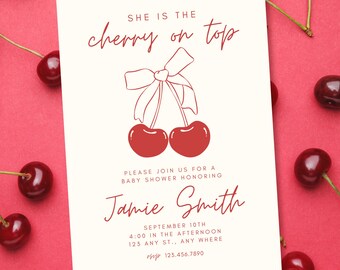 SHE IS THE
cherry on top
PLEASE JOIN US FOR A
BABY SHOWER HONORING
Jamie Smith
SEPTEMBER 10TH
4:00 IN THE AFTERNOON
123 ANY ST., ANY WHERE
rsvp 123.456.7890